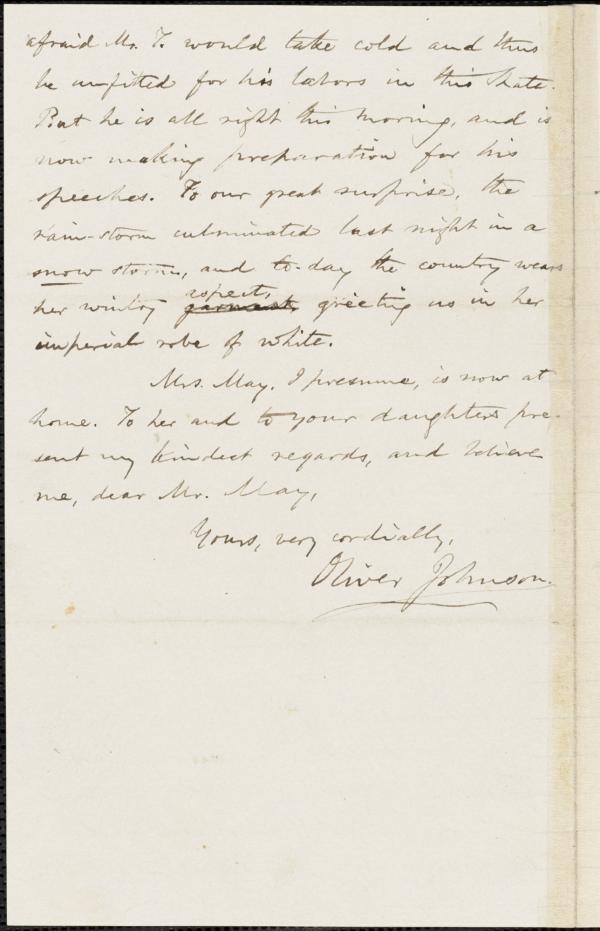 afraid Mr. T. would take cold and thus
be unfitted for his labors in this State.
But he is all right this morning, and is
now making preparation for his
speeches. To our great surprise, the
rain-storm culminated last night in a
snow storm, and to-day the country wears
her wintry garment, aspect, greeting us in her
imperial robe of white.
Mrs. May, I presume, is now at
home. To her and to your daughters pre-
sent my kindest regards, and believe
me, dear Mr. May,
Yours, very cordially,
Oliver Johnson.